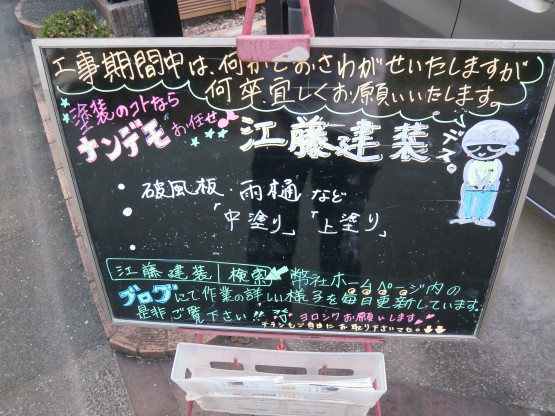 工事期間中は、何かとおさわがせいたしますが
何卒宜しくお願いいたします。
塗装のコトなら
ナンデモお任せ
江藤建装
デス。
・破風板・雨樋など
・「中塗り」「上塗り」
・
江藤建装 検索
幣社ホームページ内の
ブログにて作業の詳しい様子を毎日更新しています。
是非ご覧下さい!!
ヨロシクお願いします
チラシもご自由にお取り下さいマセ。